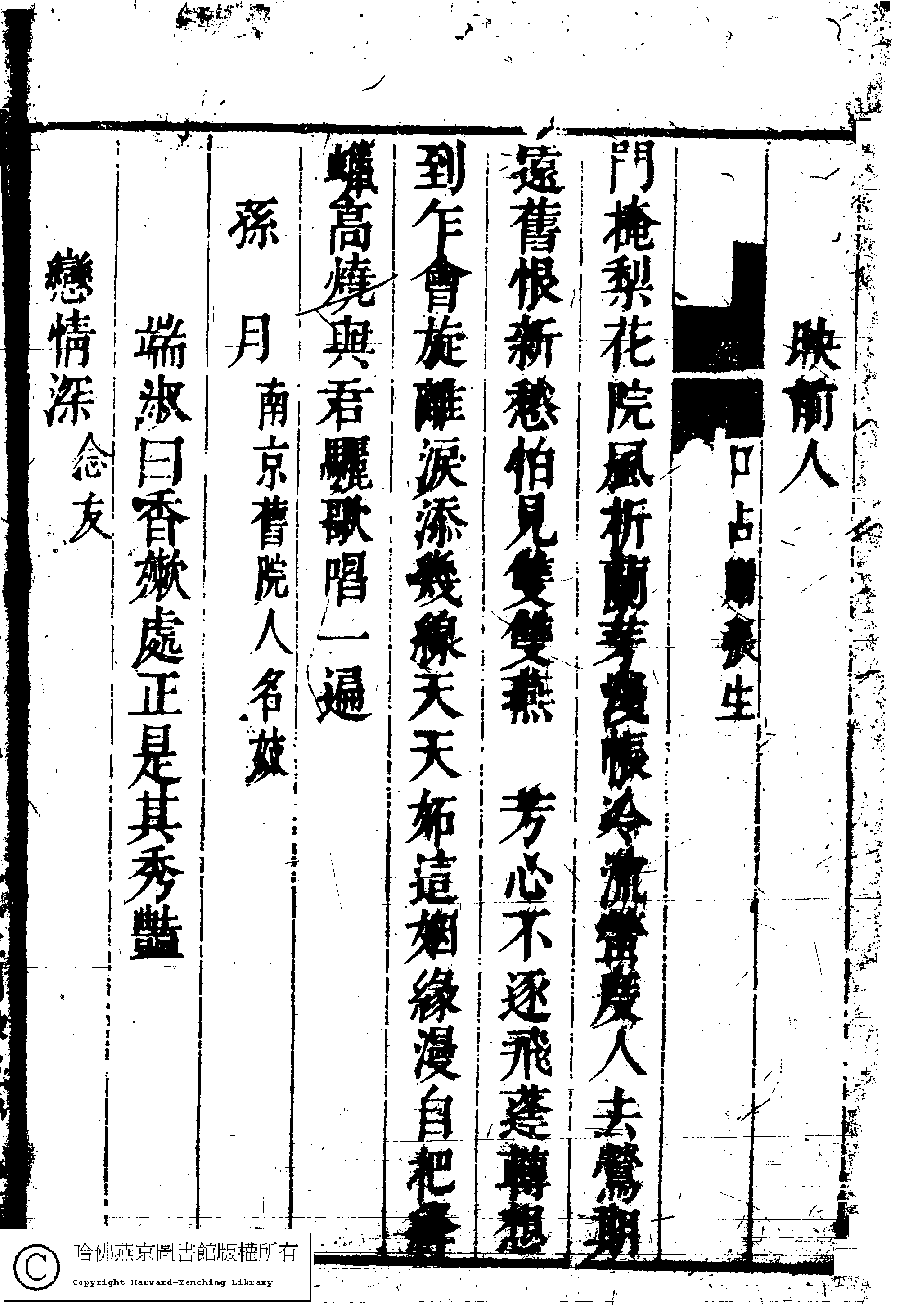 映前人
口占贈張生
門掩梨花院風折蘭芽慢帳冷流螢度人去鶯期
遠舊恨新愁怕見雙雙燕　芳心不逐飛蓬轉想
到乍會旋離淚添幾線天天妬這姻緣漫自把
蠟高燒與君驪歌唱一遍
孫月南京舊院人名妓
端淑曰香嫩處正是其秀豔
戀情深念友
哈佛燕京圖書館版權所有
Copyright Harvard-Yenching Library